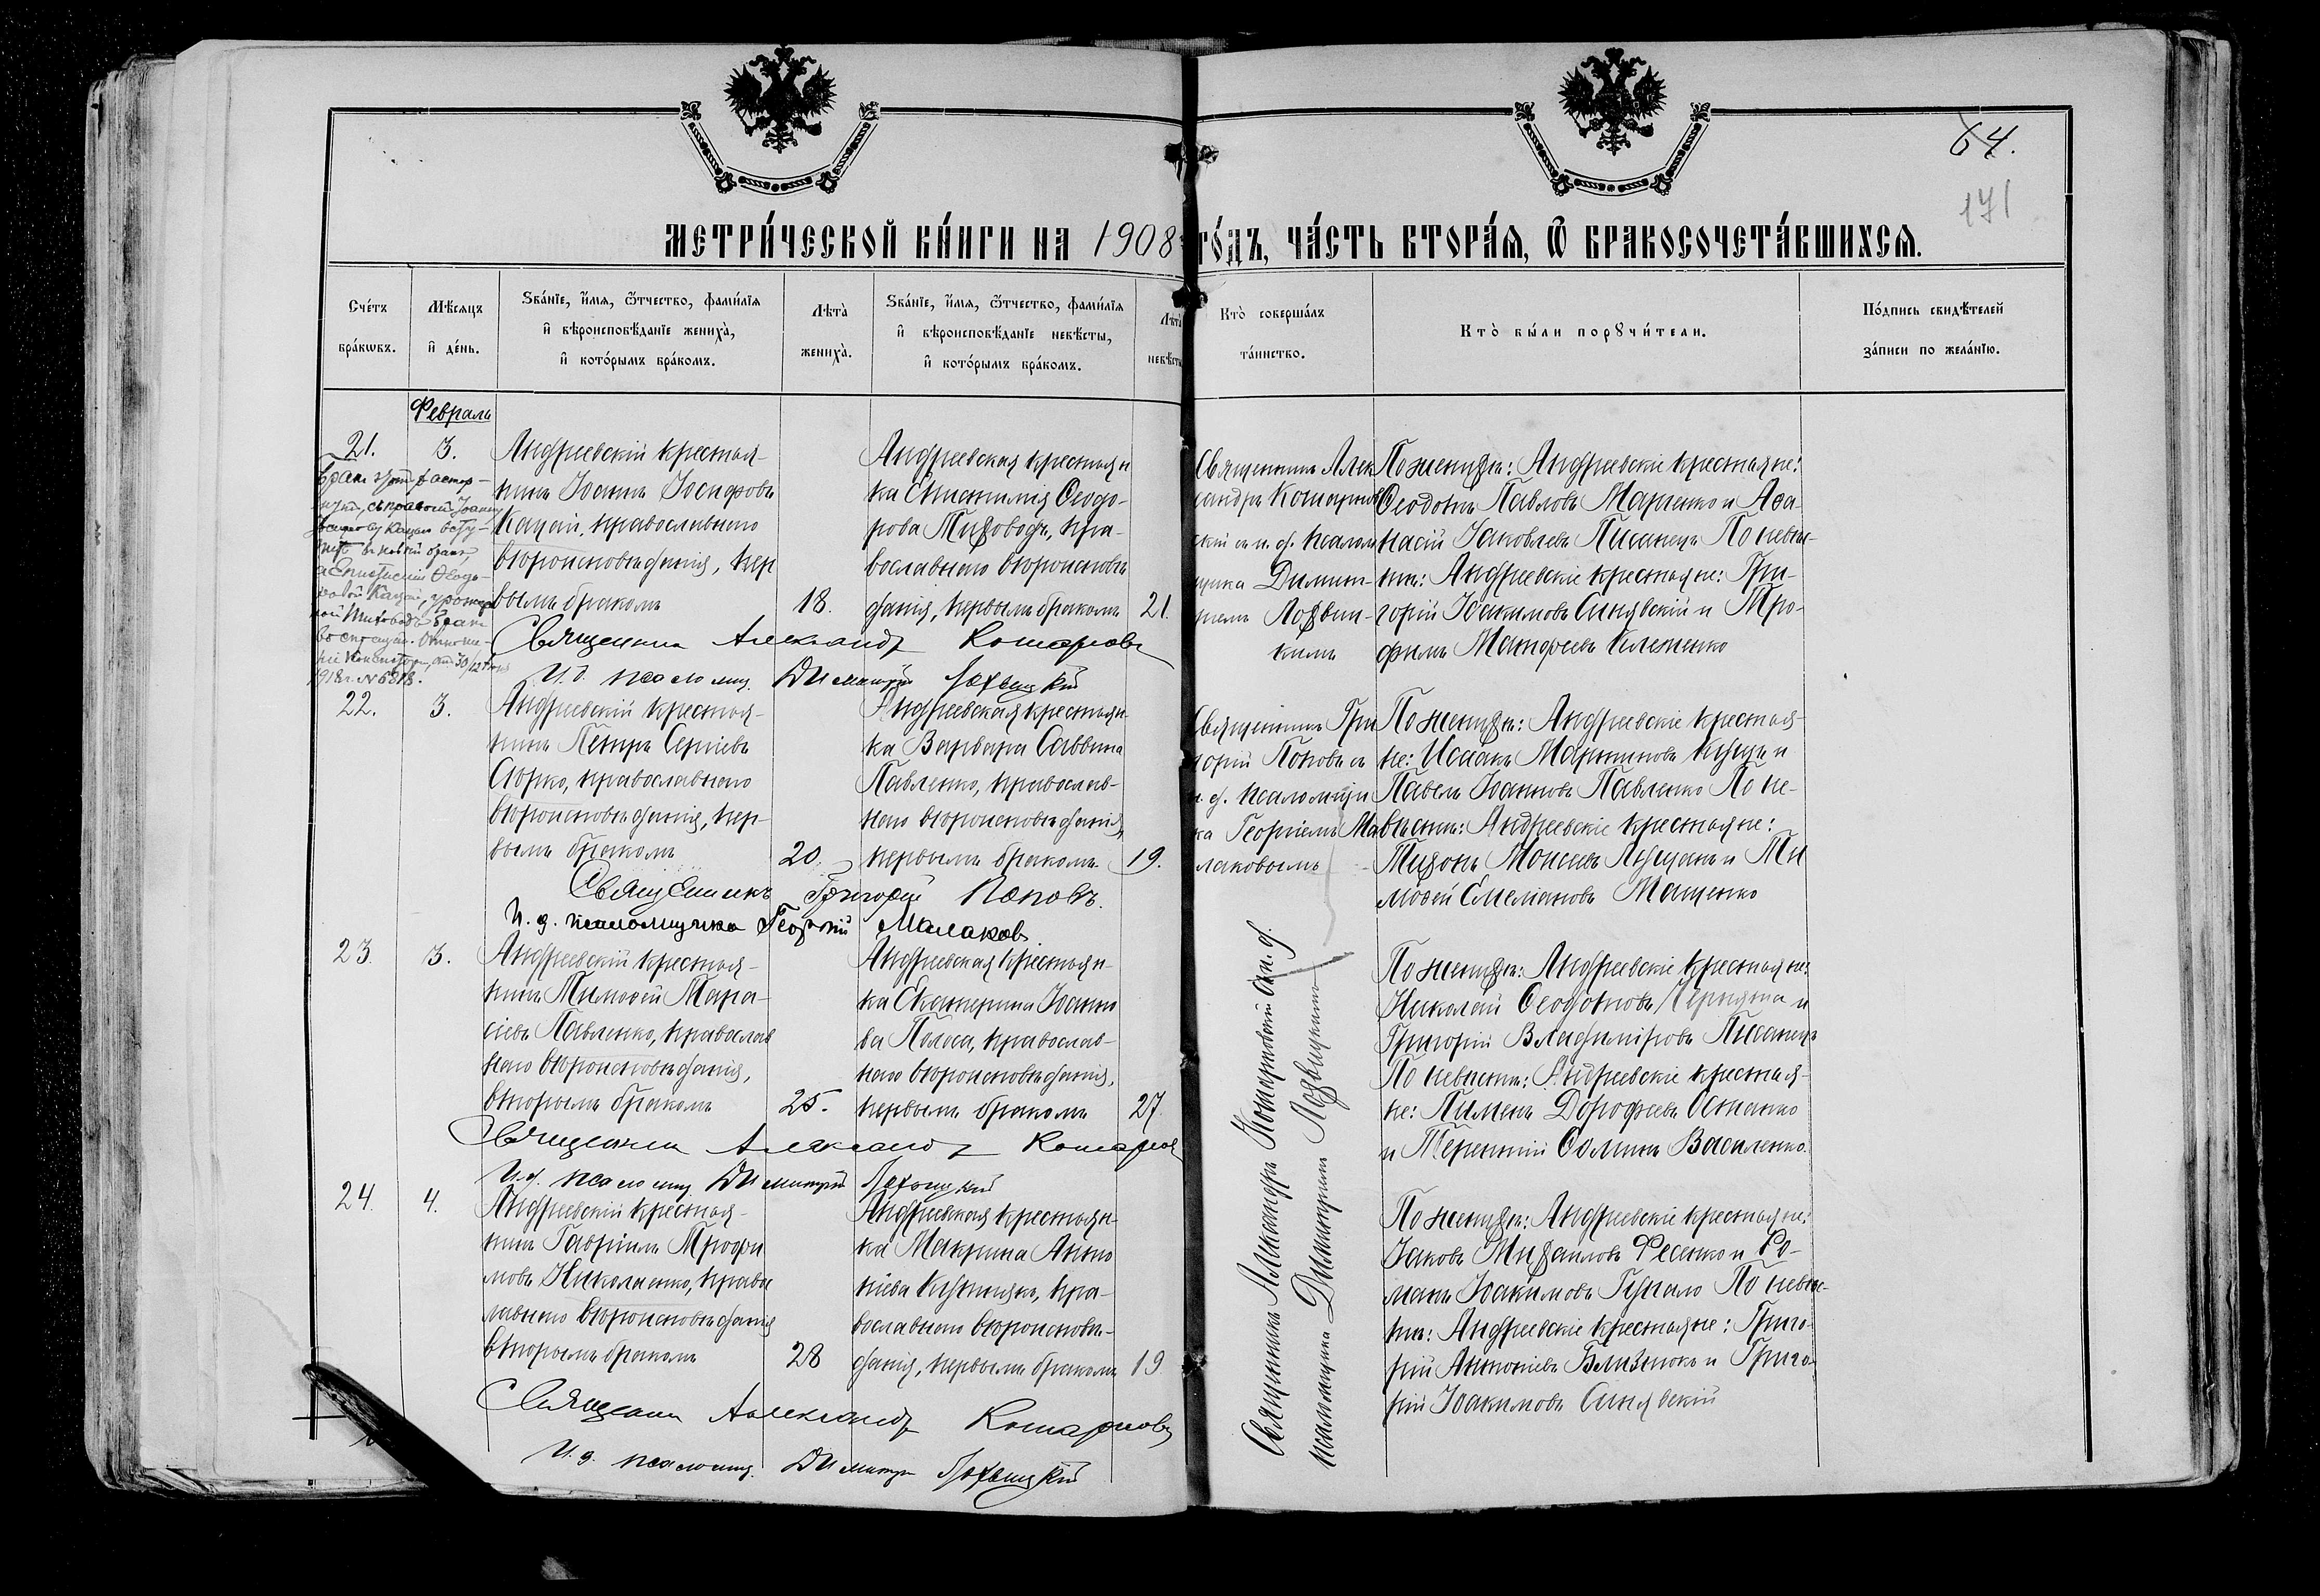 64.
171
МЕТРИ́ЧЕСКОЙ КНИ́ГИ НА 1908 ГО́ДЪ, ЧА́СТЬ ВТОРА́Я, Ѿ БРАКОСОЧЕТА́ВШИХСЯ.
Сче́тъ бра́кωвъ.
Мѣ́сяцъ и҆ де́нь.
Ѕва́нїе, и҆́мя, ѻ҆́тчество, фами́лїя и҆ вѣроисповѣ́данїе жениха̀, и҆ кото́рымъ бра́комъ.
Лѣта̀ жениха̀.
Ѕва́нїе, и҆́мя, ѻ҆́тчество, фами́лїя и҆ вѣроисповѣ́данїе невѣ́сты, и҆ кото́рымъ бра́комъ.
Лѣта̀ невѣсты
Кто̀ соверша́лъ та́инство.
Кто̀ бы́ли порꙋчи́тели.
По́дпись свидѣ́телей за́писи по жела́нїю.
Февраль
21.
3.
Андреевскій крестья-
нинъ Іоаннъ Іосифовъ
Кацай, православнаго
вѣроисповѣданія, пер
вымъ бракомъ
18.
Андреевская крестьян
ка Епистимія Ѳеодо-
рова Тиховодъ, пра-
вославнаго вѣроисповѣ
данія, первымъ бракомъ
21.
Священникъ Алек
сандръ Комарнов
скій съ и. д. псалом
щика Димит-
ріемъ Лозвиц-
кимъ
По женихѣ: Андреевскіе крестьяне:
Ѳеодотъ Павловъ Марченко и Аѳа-
насій Іаковлевъ Писанецъ По невѣс-
тѣ: Андреевскіе крестьяне: Гри-
горій Іоакимовъ Синявскій и Тро-
фимъ Матфеевъ Клименко
Священникъ Александръ
И. д. псаломщ. Димитрій Лозвицкій
1918 г. № 6818.
22.
3.
Андреевскій крестья-
нинъ Петръ Сергіевъ
православнаго
вѣроисповѣданія, пер-
вымъ бракомъ
20.
Андреевская крестьян-
ка Варвара Саввина
Павленко, православ-
наго вѣроисповѣданія,
первымъ бракомъ
19.
Священникъ Гри
горій Поповъ съ
и. д. псаломщи
ка Георгіемъ Ма
лаковымъ
По женихѣ: Андреевскіе крестья-
не: Исаакъ Мартиновъ Куцъ и
Павелъ Іоанновъ Павленко По не-
вѣстѣ: Андреевскіе крестьяне:
Тихонъ Моисеевъ и Ти
моѳей Емеліановъ Мащенко
Священникъ Григорій Поповъ.
И. д. псаломщика Георгій Малаковъ.
23.
3.
Андреевскій крестья-
нинъ Тимоѳей Тара-
сіевъ Павленко, православ
наго вѣроисповѣданія,
вторымъ бракомъ
25.
Андреевская крестьян-
ка Екатерина Іоанно
ва Полоса, православ-
наго вѣроисповѣданія,
первымъ бракомъ
27.
Священникъ Александръ
псаломщика Димитріемъ Лозвицкимъ
По женихѣ: Андреевскіе крестьяне:
Николай Ѳеодотовъ и
Григорій Владиміровъ Писанецъ
По невѣстѣ: Андреевскіе крестья-
не: Пименъ Дорофеевъ Остапко
и Терентій Ѳоминъ Василенко.
Священникъ Александръ
И. д. псаломщ. Димитрій Лозвицкій
24.
4.
Андреевскій крестья-
нинъ Гавріилъ Трофи
мовъ Николаенко, правос
лавнаго вѣроисповѣданія
вторымъ бракомъ
28
Андреевская крестьян-
ка Макрина Анто
ніева пра-
вославнаго вѣроисповѣ-
данія, первымъ бракомъ
19
По женихѣ: Андреевскіе крестьяне:
Іаковъ Михаиловъ Фесенко и Ро-
манъ Іоакимовъ По невѣс-
тѣ: Андреевскіе крестьяне: Григо-
рій Антоніевъ Близнюкъ и Григо-
рій Іоакимовъ Синявскій
Священникъ Александръ
И. д. псаломщ. Димитрій Лозвицкій